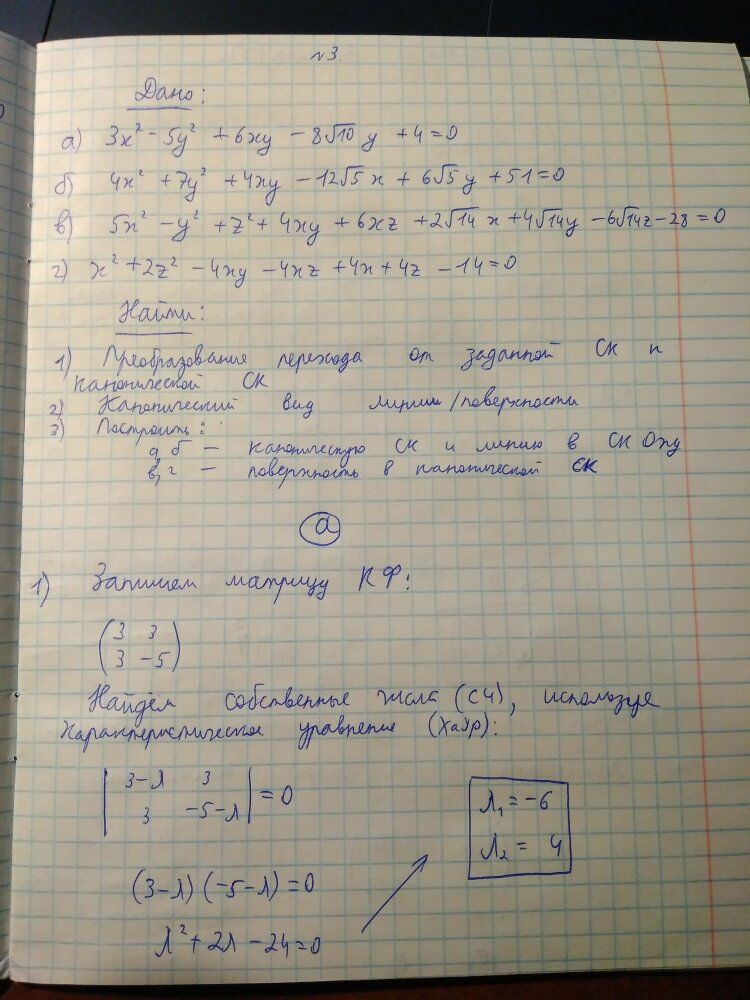 №3.
Дано:
а) 3x² - 5y² + 6xy - 8√10 y + 4 = 0
б) 4x² + 7y² + 4xy - 12√5 x + 6√5 y + 51 = 0
в) 5x² - y² + z² + 4xy + 6xz + 2√14 x + 4√14 y - 6√14 z - 28 = 0
г) x² + 2z² - 4xy - 4xz + 4x + 4z - 14 = 0
Найти:
1) Преобразование перехода от заданной СК к
канонической СК
2) Канонический вид линии/поверхности
3) Построить:
а, б — каноническую СК и линию в СК Oxy
в, г — поверхность в канонической СК
а
1) Запишем матрицу КФ:
(3 3
3 -5)
Найдём собственные числа (СЧ), используя
характеристическое уравнение (ХаУр):
|3-λ 3
3 -5-λ| = 0
λ₁ = -6
λ₂ = 4
(3-λ)(-5-λ) = 0
λ² + 2λ - 24 = 0